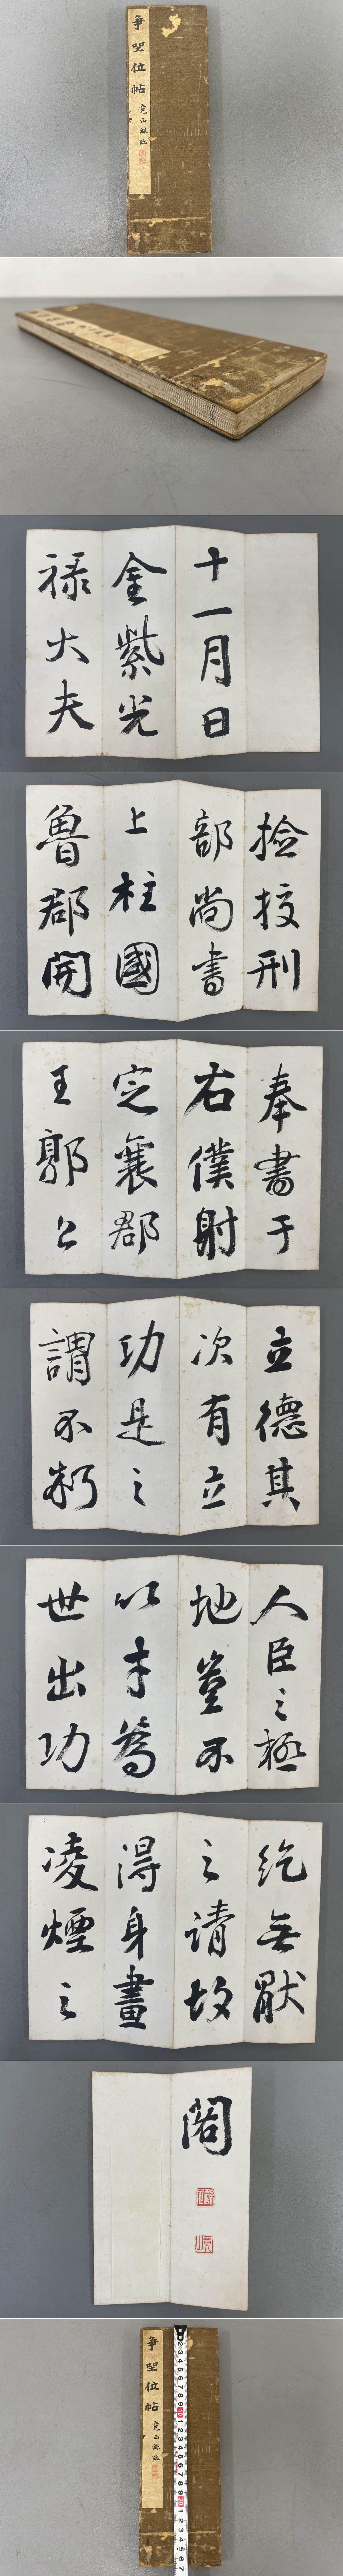 争坐位帖
十一月日
金紫光
禄大夫
捡挍刑
部尚書
上柱國
魯郡開
奉書于
右僕射
定襄郡
王郭公
立德其
次有立
功是之
謂不朽
人臣之極
地豈不
以才為
世出功
紇無厭
之請故
得身畫
凌煙之
閣
争坐位帖